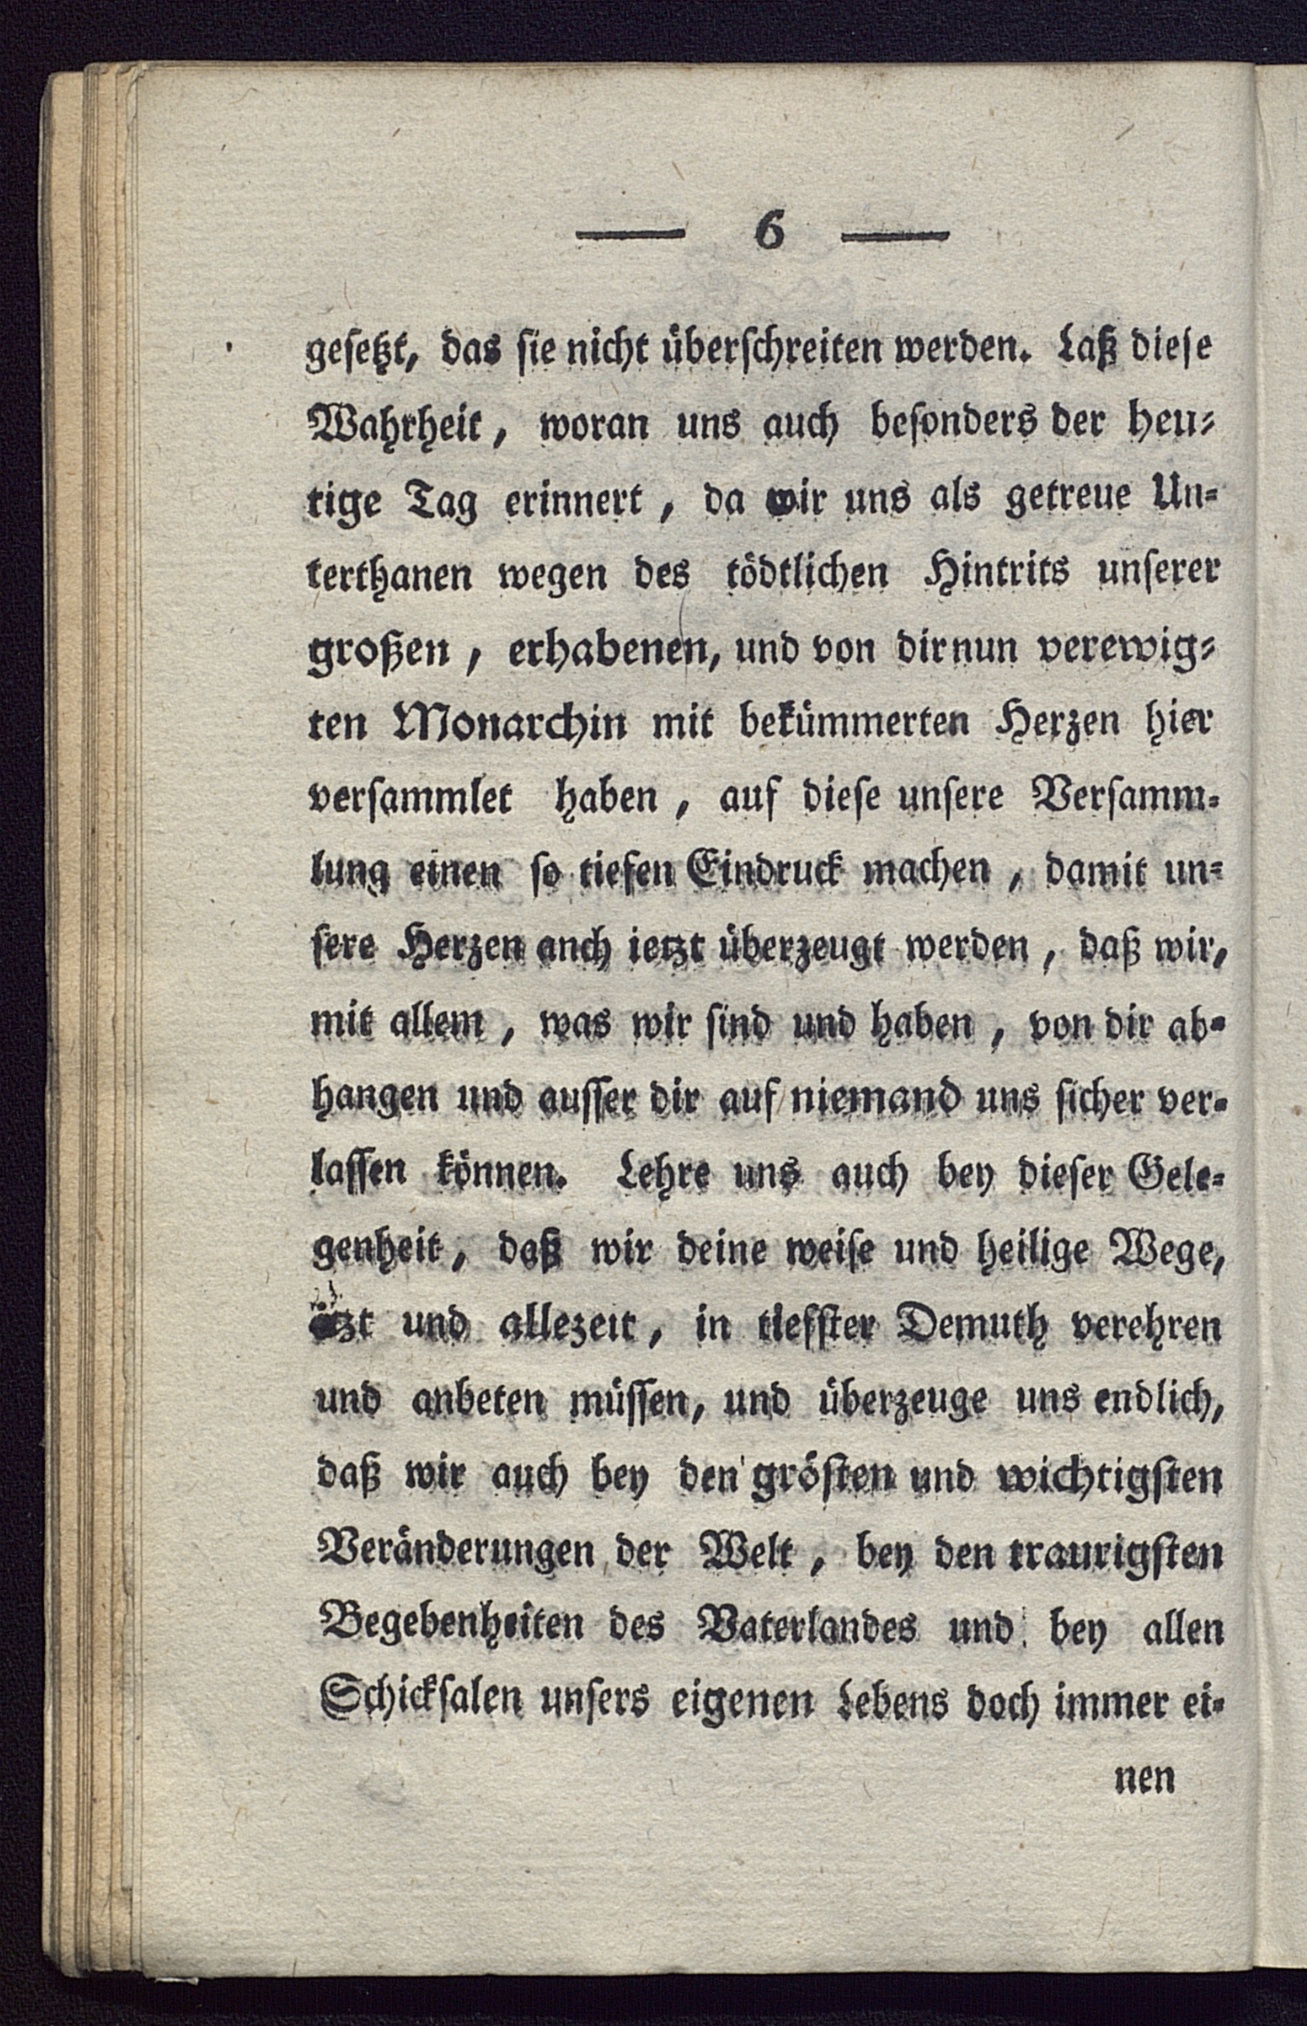 — 6 —
gesetzt, das sie nicht überschreiten werden. Laß diese
Wahrheit, woran uns auch besonders der heu-
tige Tag erinnert, da wir uns als getreue Un-
terthanen wegen des tödtlichen Hintrits unserer
großen, erhabenen, und von dir nun verewig-
ten Monarchin mit bekümmerten Herzen hier
versammlet haben, auf diese unsere Versamm-
lung einen so tiefen Eindruck machen, damit un-
sere Herzen anch ietzt überzeugt werden, daß wir,
mit allem, was wir sind und haben, von dir ab-
hangen und ausser dir auf niemand uns sicher ver-
lassen können. Lehre uns auch bey dieser Gele-
genheit, daß wir deine weise und heilige Wege,
und allezeit, in tiefster Demuth verehren
und anbeten müssen, und überzeuge uns endlich,
daß wir auch bey den grösten und wichtigsten
Veränderungen der Welt, bey den traurigsten
Begebenheiten des Vaterlandes und bey allen
Schicksalen unsers eigenen Lebens doch immer ei-
nen